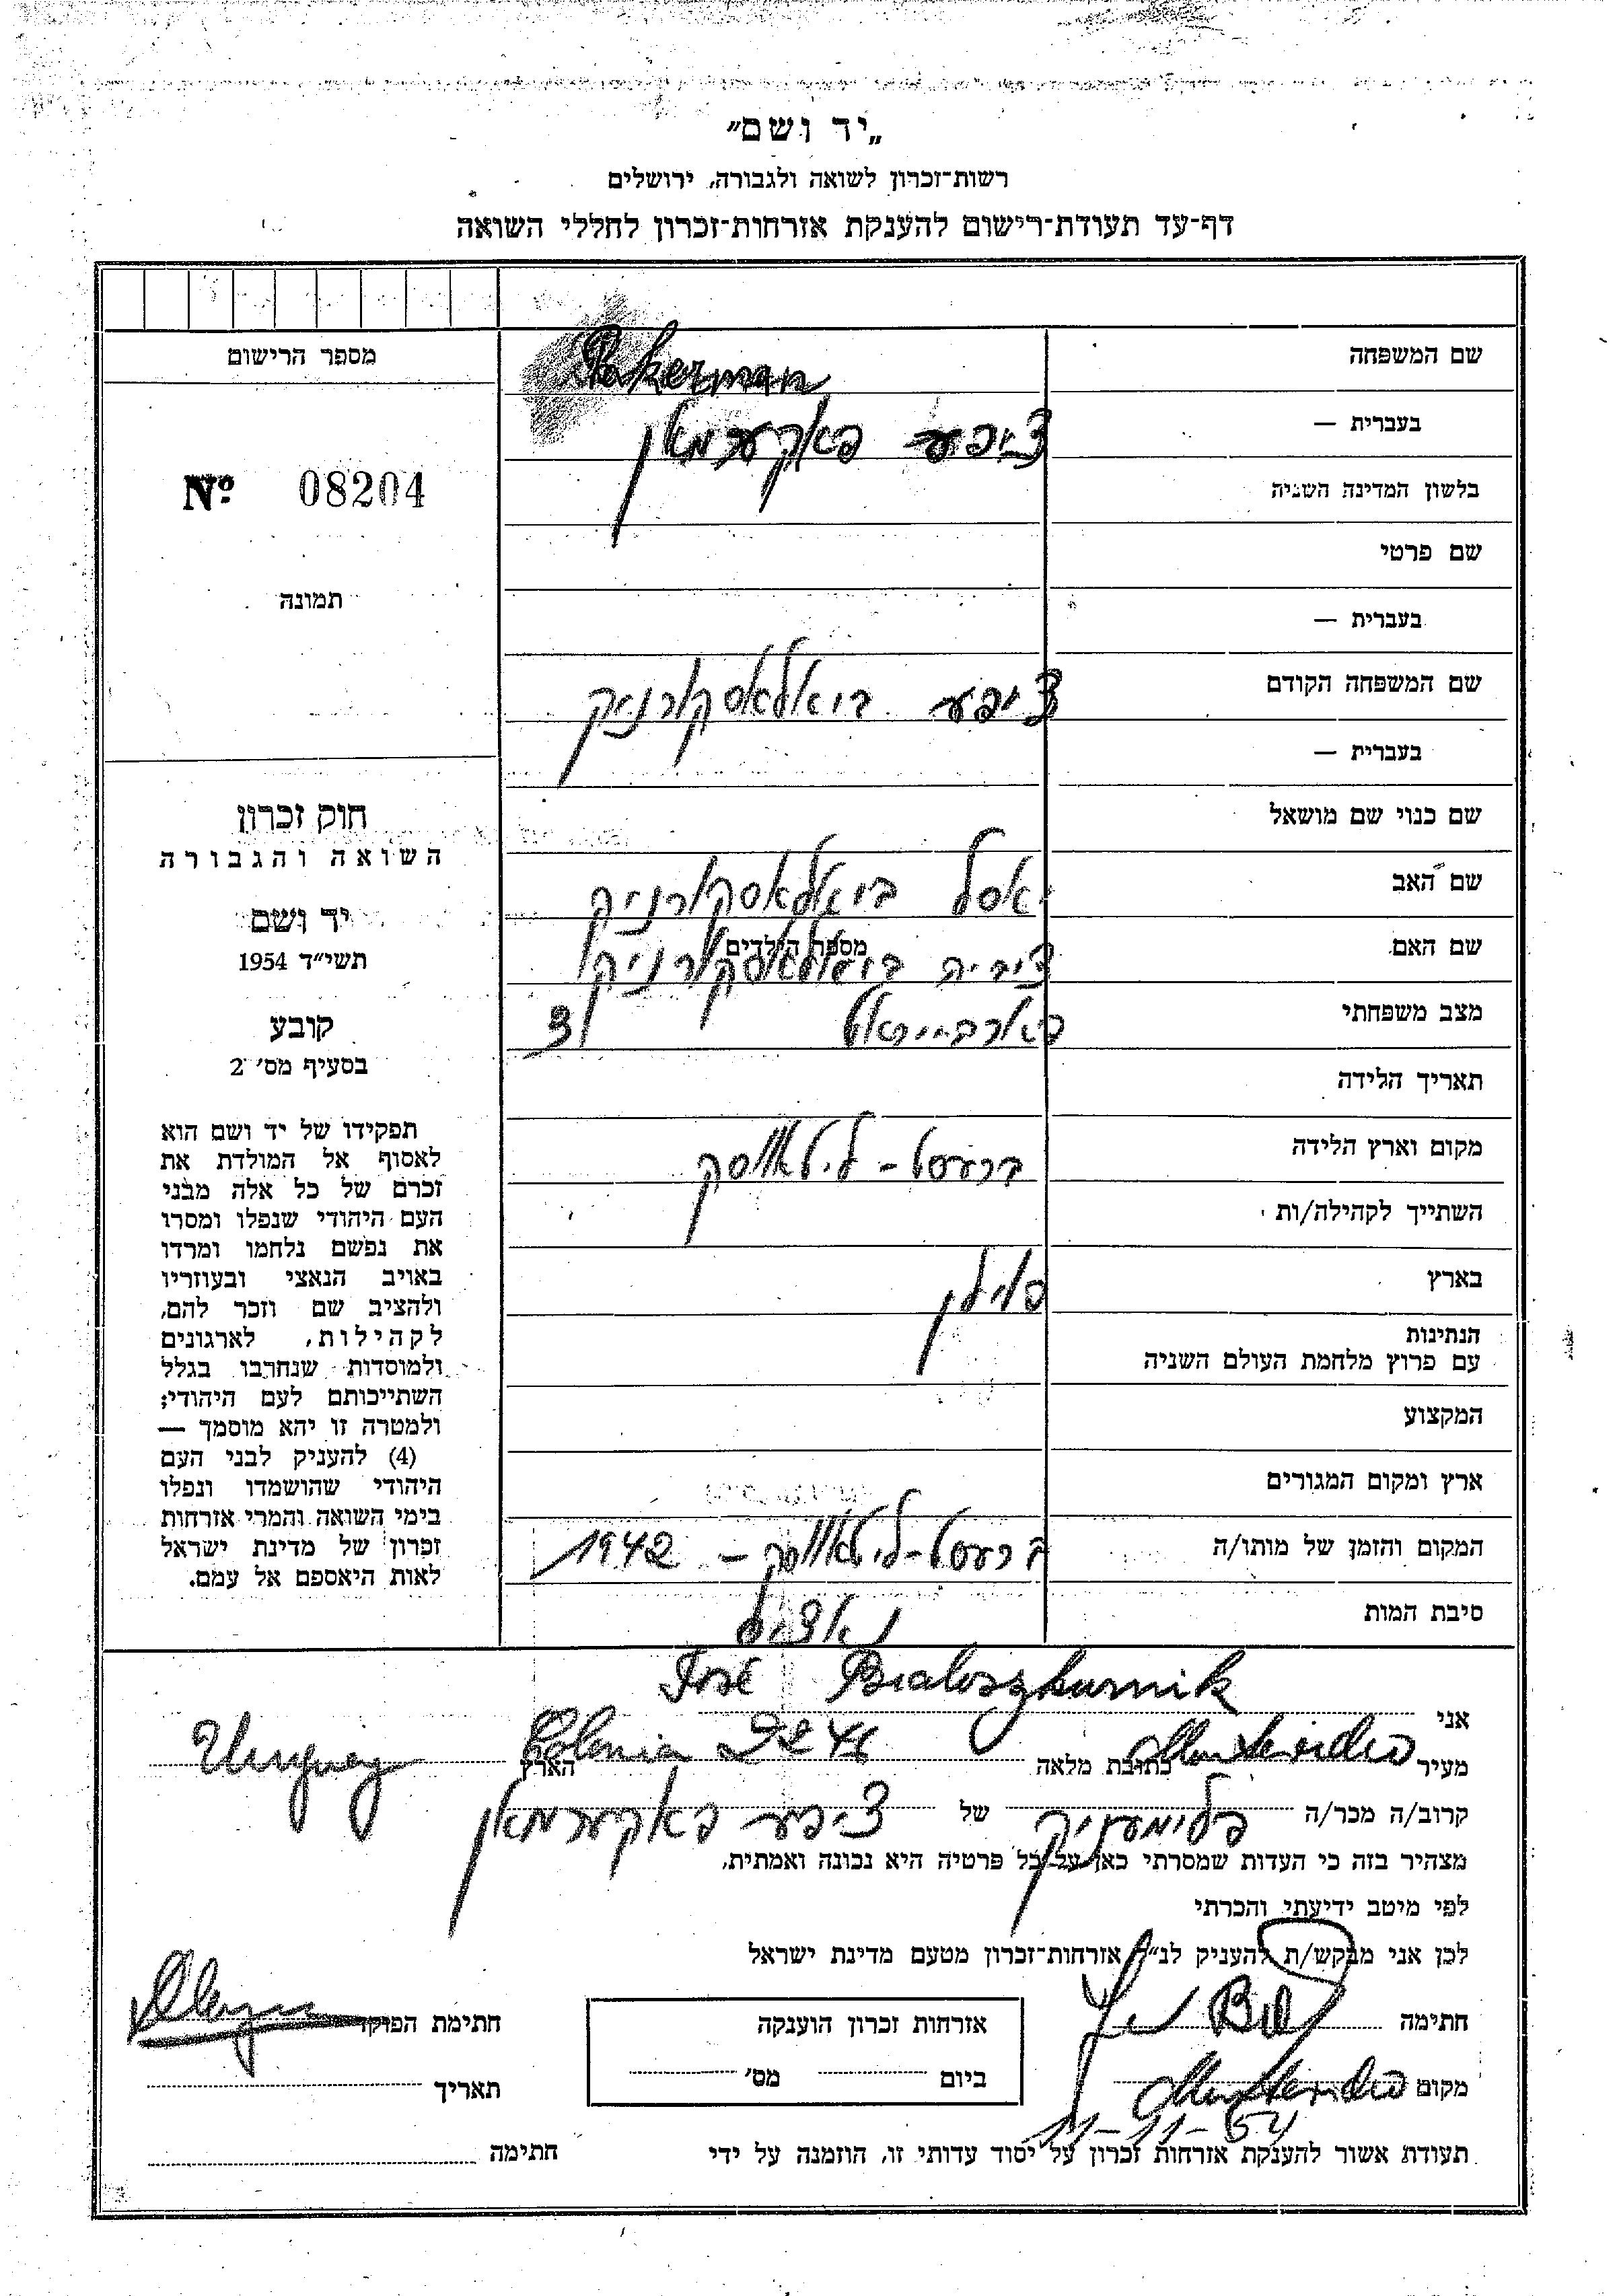 „יד ושם"
רשות־זכרון לשואה ולגבורה, ירושלים
דף-עד תעודת-רישום להענקת אזרחות-זכרון לחללי השואה
שם המשפחה Pakerman
בעברית — ציפע פאקערמאן
בלשון המדינה השניה
שם פרטי
בעברית —
שם המשפחה הקודם ציפע ביאלאסקורניק
בעברית —
שם כנוי שם מושאל
שם האב יאסל ביאלאסקורניק
שם האם ציביה ביאלאסקורניק
מצב משפחתי פארהייראט מספר הילדים 3
תאריך הלידה
מקום וארץ הלידה ברעסט - ליטאווסק
השתייך לקהילה/ות
בארץ פוילן
הנתינות
עם פרוץ מלחמת העולם השניה
המקצוע
ארץ ומקום המגורים
המקום והזמן של מותו/ה ברעסט-ליטאווסק - 1942
סיבת המות
מספר הרישום
Nº 08204
תמונה
חוק זכרון
השואה והגבורה
יד ושם
תשי״ד 1954
קובע
בסעיף מס׳ 2
תפקידו של יד ושם הוא
לאסוף אל המולדת את
זכרם של כל אלה מבני
העם היהודי שנפלו ומסרו
את נפשם נלחמו ומרדו
באויב הנאצי ובעוזריו
ולהציב שם וזכר להם,
לקהילות, לארגונים
ולמוסדות שנחרבו בגלל
השתייכותם לעם היהודי;
ולמטרה זו יהא מוסמך —
(4) להעניק לבני העם
היהודי שהושמדו ונפלו
בימי השואה והמרי אזרחות
זכרון של מדינת ישראל
לאות היאספם אל עמם.
אני José Bialoszkurnik
מעיר Montevideo כתובת מלאה Colonia 2246 הארץ Uruguay
קרוב/ה מכר/ה פלימעניק של ציפע פאקערמאן
מצהיר בזה כי העדות שמסרתי כאן על כל פרטיה היא נכונה ואמתית,
לפי מיטב ידיעתי והכרתי
לכן אני מבקש/ת להעניק לנ״ל אזרחות־זכרון מטעם מדינת ישראל
חתימה
אזרחות זכרון הוענקה
חתימת הפוקד
מקום Montevideo
ביום מס׳
תאריך
11-11-54
תעודת אשור להענקת אזרחות זכרון על יסוד עדותי זו, הוזמנה על ידי חתימה